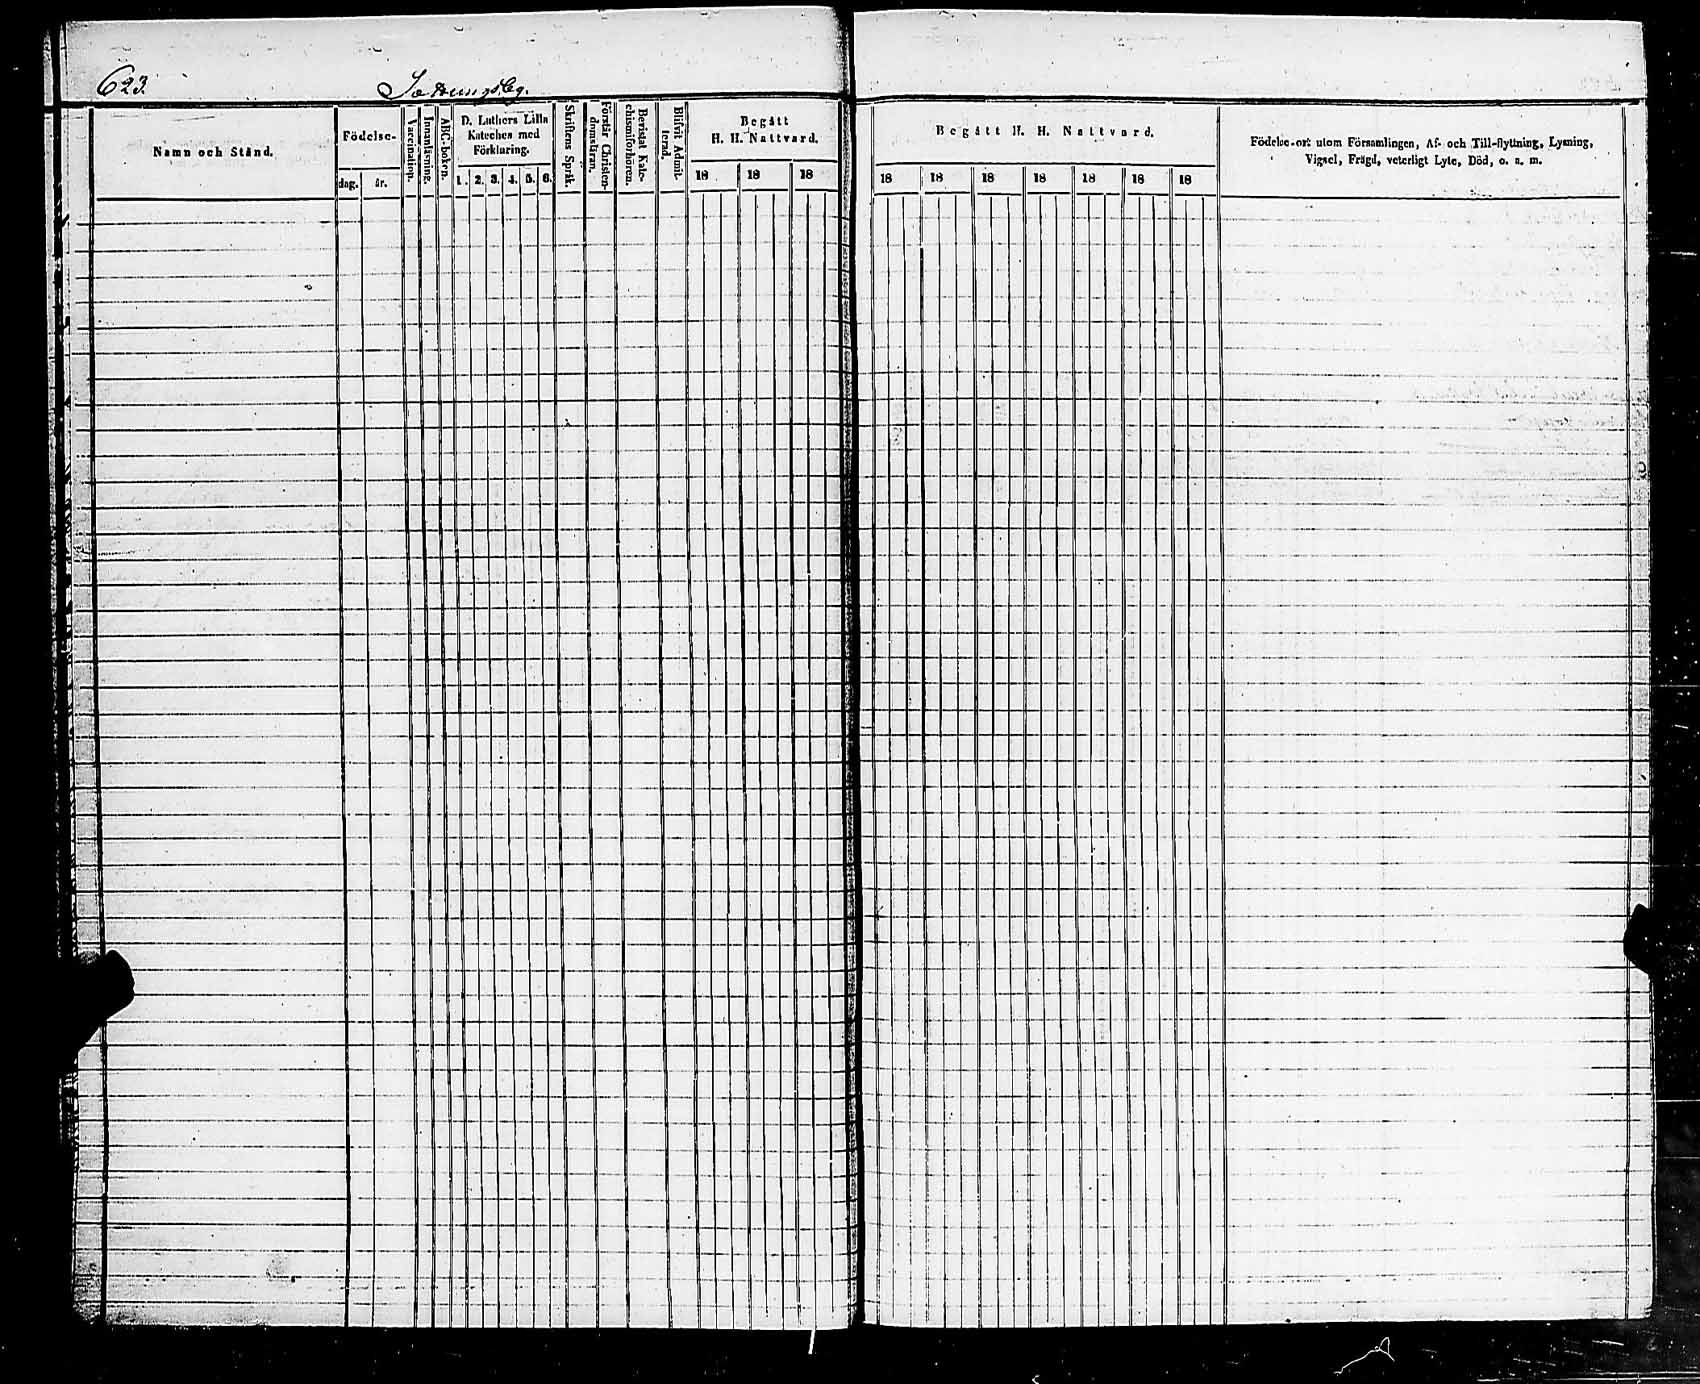 623.
Namn och Stånd.
Födelse-
dag.
år.
Vaccination.
Innanläsning.
ABC-boken.
D. Luthers Lilla
Kateches med
Förklaring.
1. 2. 3. 4. 5. 6.
Skriftens Språk.
Förstår Christen-
domsläran.
Bevistat Kate-
chismiförhören.
Blifvit Admit-
terad.
Begått
H. H. Nattvard.
18 18 18
Begått H. H. Nattvard.
18 18 18 18 18 18 18
Födelse-ort utom Församlingen, Af- och Till-flyttning, Lysning,
Vigsel, Frägd, veterligt Lyte, Död, o. s. m.